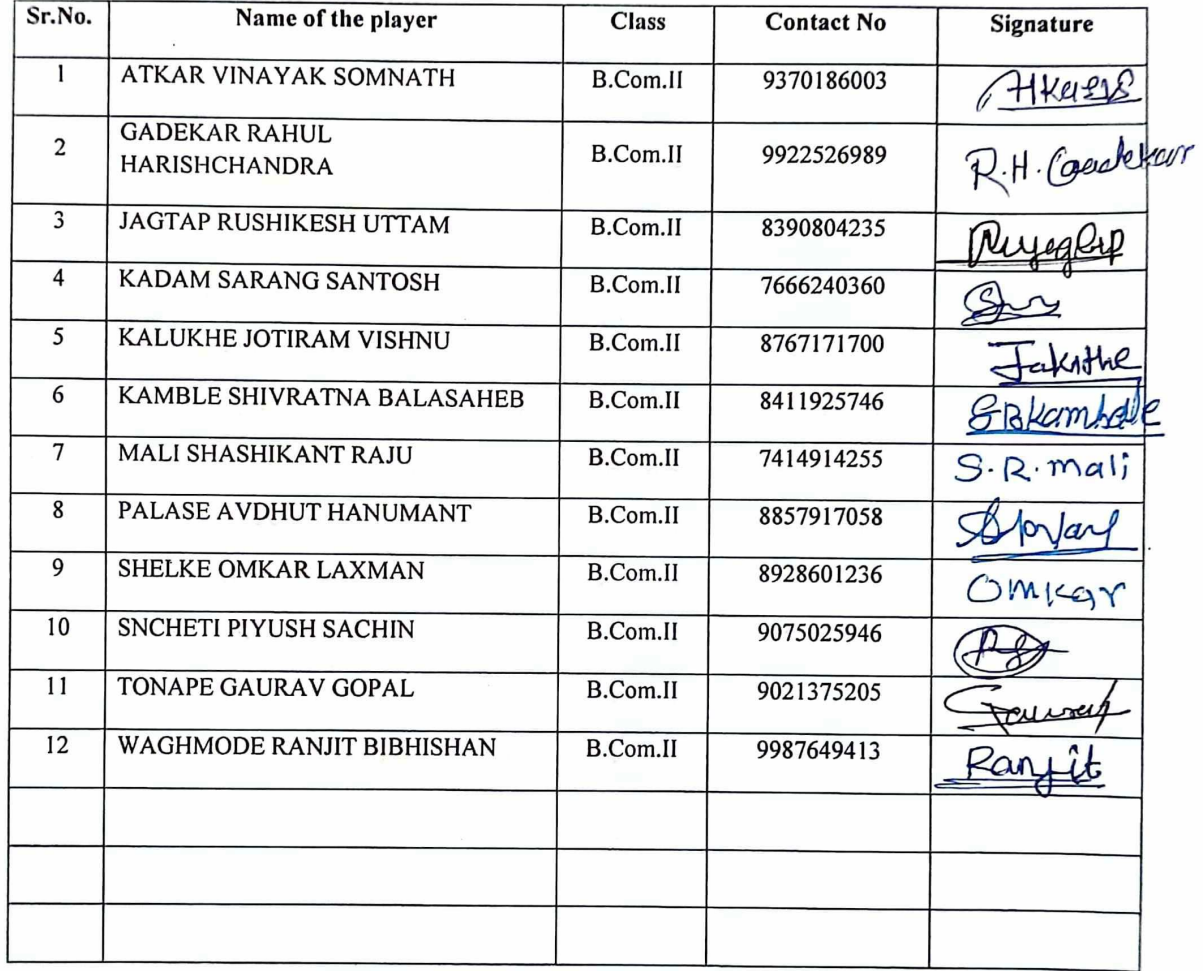 Sr.No. Name of the player Class Contact No Signature
1 ATKAR VINAYAK SOMNATH B.Com.II 9370186003
2 GADEKAR RAHUL
HARISHCHANDRA B.Com.II 9922526989 R.H. Gadekar
3 JAGTAP RUSHIKESH UTTAM B.Com.II 8390804235
4 KADAM SARANG SANTOSH B.Com.II 7666240360
5 KALUKHE JOTIRAM VISHNU B.Com.II 8767171700
6 KAMBLE SHIVRATNA BALASAHEB B.Com.II 8411925746 SBKamble
7 MALI SHASHIKANT RAJU B.Com.II 7414914255 S.R.mali
8 PALASE AVDHUT HANUMANT B.Com.II 8857917058
9 SHELKE OMKAR LAXMAN B.Com.II 8928601236 OMKar
10 SNCHETI PIYUSH SACHIN B.Com.II 9075025946
11 TONAPE GAURAV GOPAL B.Com.II 9021375205 Gaurav
12 WAGHMODE RANJIT BIBHISHAN B.Com.II 9987649413 Ranjit